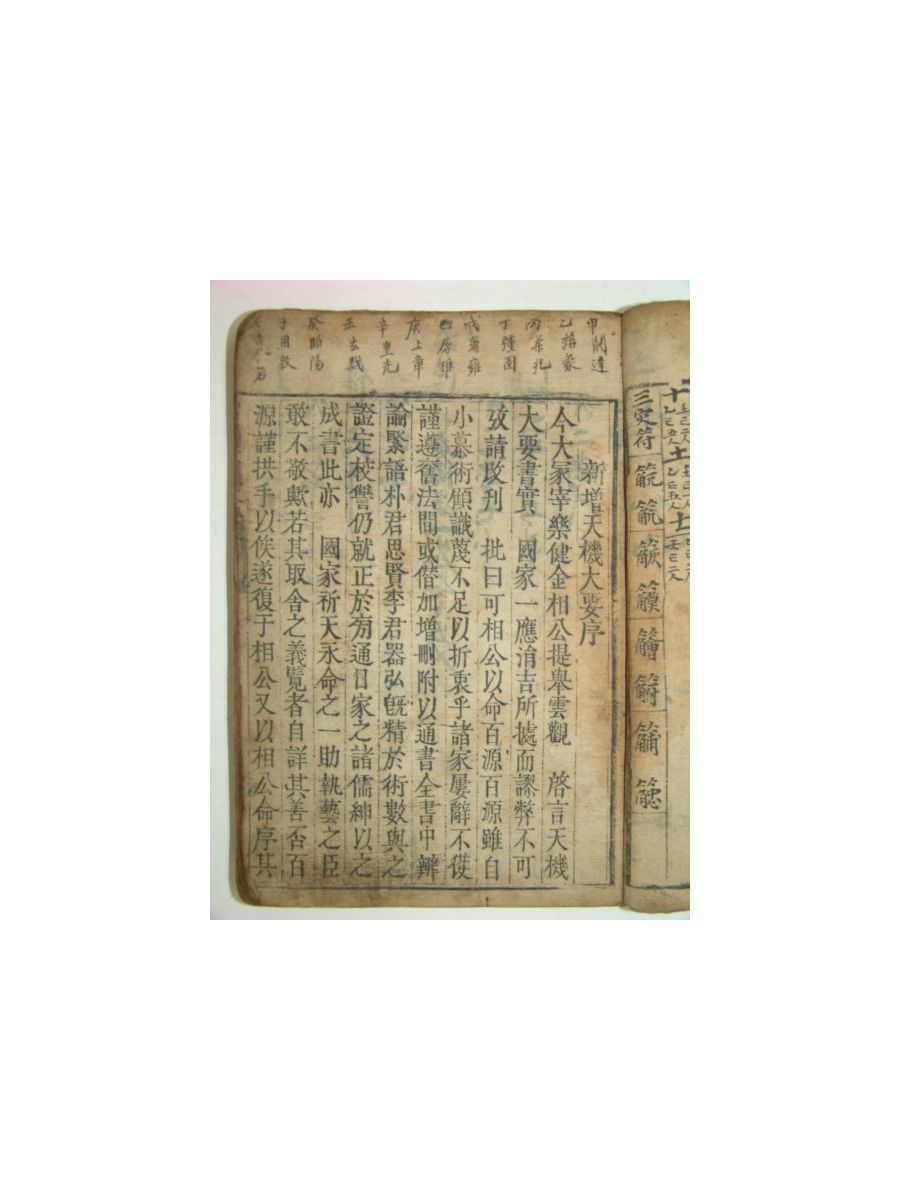 三定符
甲閼逢
乙旃蒙
丙柔兆
丁彊圉
戊著雍
己屠維
庚上章
辛重光
壬玄黓
癸昭陽
子困敦
新增天機大要序
今大冢宰樂健金相公提舉雲觀 啓言天機
大要書實 國家一應涓吉所據而謬弊不可
攷請改刊 批曰可相公以命百源百源雖自
小慕術顧識蔑不足以折衷乎諸家屢辭不獲
謹遵舊法間或僭加增刪附以通書全書中辨
論緊語朴君思賢李君器弘旣精於術數與之
證定校讐仍就正於旁通日家之諸儒紳以之
成書此亦 國家祈天永命之一助執藝之臣
敢不敬歟若其取舍之義覽者自詳其善否百
源謹拱手以俟遂復于相公又以相公命序其